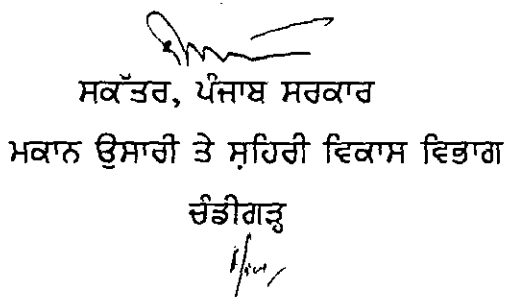 ਸਕੱਤਰ, ਪੰਜਾਬ ਸਰਕਾਰ
ਮਕਾਨ ਉਸਾਰੀ ਤੇ ਸ਼ਹਿਰੀ ਵਿਕਾਸ ਵਿਭਾਗ
ਚੰਡੀਗੜ੍ਹ